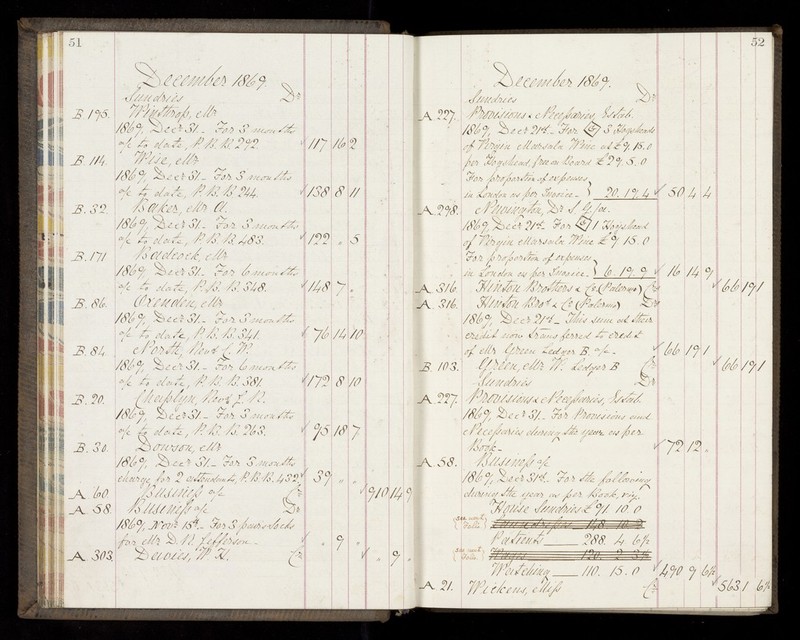 51
December 1869
Sundries Dr
B. 195. Winthrop, Mr
1869, Decr 31 - For 3 months
a/c to date, P.B.B. 292 117 16 2
B. 114. Wise, Mr
1869, Decr 31 - For 3 months
a/c to date, P.B.B. 244. 138 8 11
B. 32. Baker, Mr A.
1869, Decr 31 - For 3 months
a/c to date, P.B.B. 483. 122 " 5
B. 171. Badcock, Mr
1869, Decr 31 - For 6 months
a/c to date, P.B.B. 348. 148 7 "
B. 86.
1869, Decr 31 - For 3 months
a/c to date, P.B.B. 341. 76 14 10
B. 84. North, Revd J. W.
1869, Decr 31 - For 6 months
a/c to date, P.B.B. 381. 172 8 10
B. 20. Chaplyn, Revd J. B.
1869, Decr 31 - For 3 months
a/c to date, P.B.B. 263. 95 18 7
B. 30. Dowson, Mr
1869, Decr 31 - For 3 months
charge for 2 attendants, P.B.B. 432. 39 " "
A. 60. Business a/c Cr 910 14 9
A. 58. Business a/c Dr
1869, Novr 15th - For 3 pairs socks
for Mr D. N. Jefferson - " 9 "
A. 303. Davies, W. H. Cr " 9 "
52
December 1869.
Sundries Dr
A. 227. Provisions & Necessaries, Estab.
1869, Decr 21st - For 3 Hogsheads
of Virgin Marsala Wine at £9. 15. 0
per Hogshead, free on board £29. 5. 0
For proportion of expenses
in London as per Invoice - 20. 19. 4 50 4 4
A. 298. Newington, Dr S. a/c.
1869 Decr 21st. For 1 Hogshead
of Virgin Marsala Wine £9. 15. 0
For proportion of expenses
in London as per Invoice. 6. 19. 9 16 14 9
A. 316. Hinton Brothers & Co (Palermo) Cr 66 19 1
A. 316. Hinton Bros & Co (Palermo) Dr
1869, Decr 21st - This sum at their
credit now transferred to credit
of Mr Green Ledger B. a/c - 66 19 1
B. 103. Green, Mr W. Ledger B Cr 66 19 1
Sundries Dr
A. 227. Provisions & Necessaries, Estab.
1869, Decr 31. For Provisions and
Necessaries during the year as per
Book - 72 12 "
A. 58. Business a/c
1869, Decr 31st. For the following
during the year as per Book, viz.
House Sundries £91. 10. 0
see next Folio
Patients 288. 4 6½
see next Folio Wages 120. 2
Watching 110. 15. 0 490 9 6½
A. 21. Wickens, Miss Cr 563 1 6½